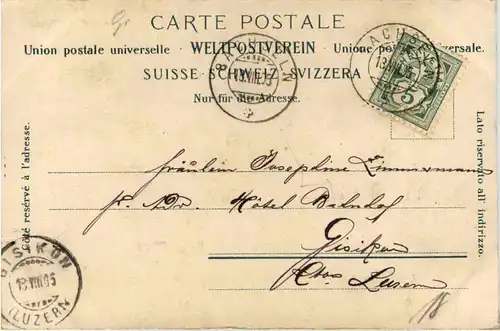 CARTE POSTALE
Union postale universelle · WELTPOSTVEREIN · Unione postale universale.
SUISSE SCHWEIZ SVIZZERA
Nur für die Adresse.
Côté reservé à l'adresse.
Lato riservato all' indirizzo.
SACHSELN
13.VIII.05
5
Fräulein Josephine Zimmermann
p. Adr. Hôtel Bahnhof
Gisikon
Ctn. Luzern
GISIKON
13.VIII.05
(LUZERN)